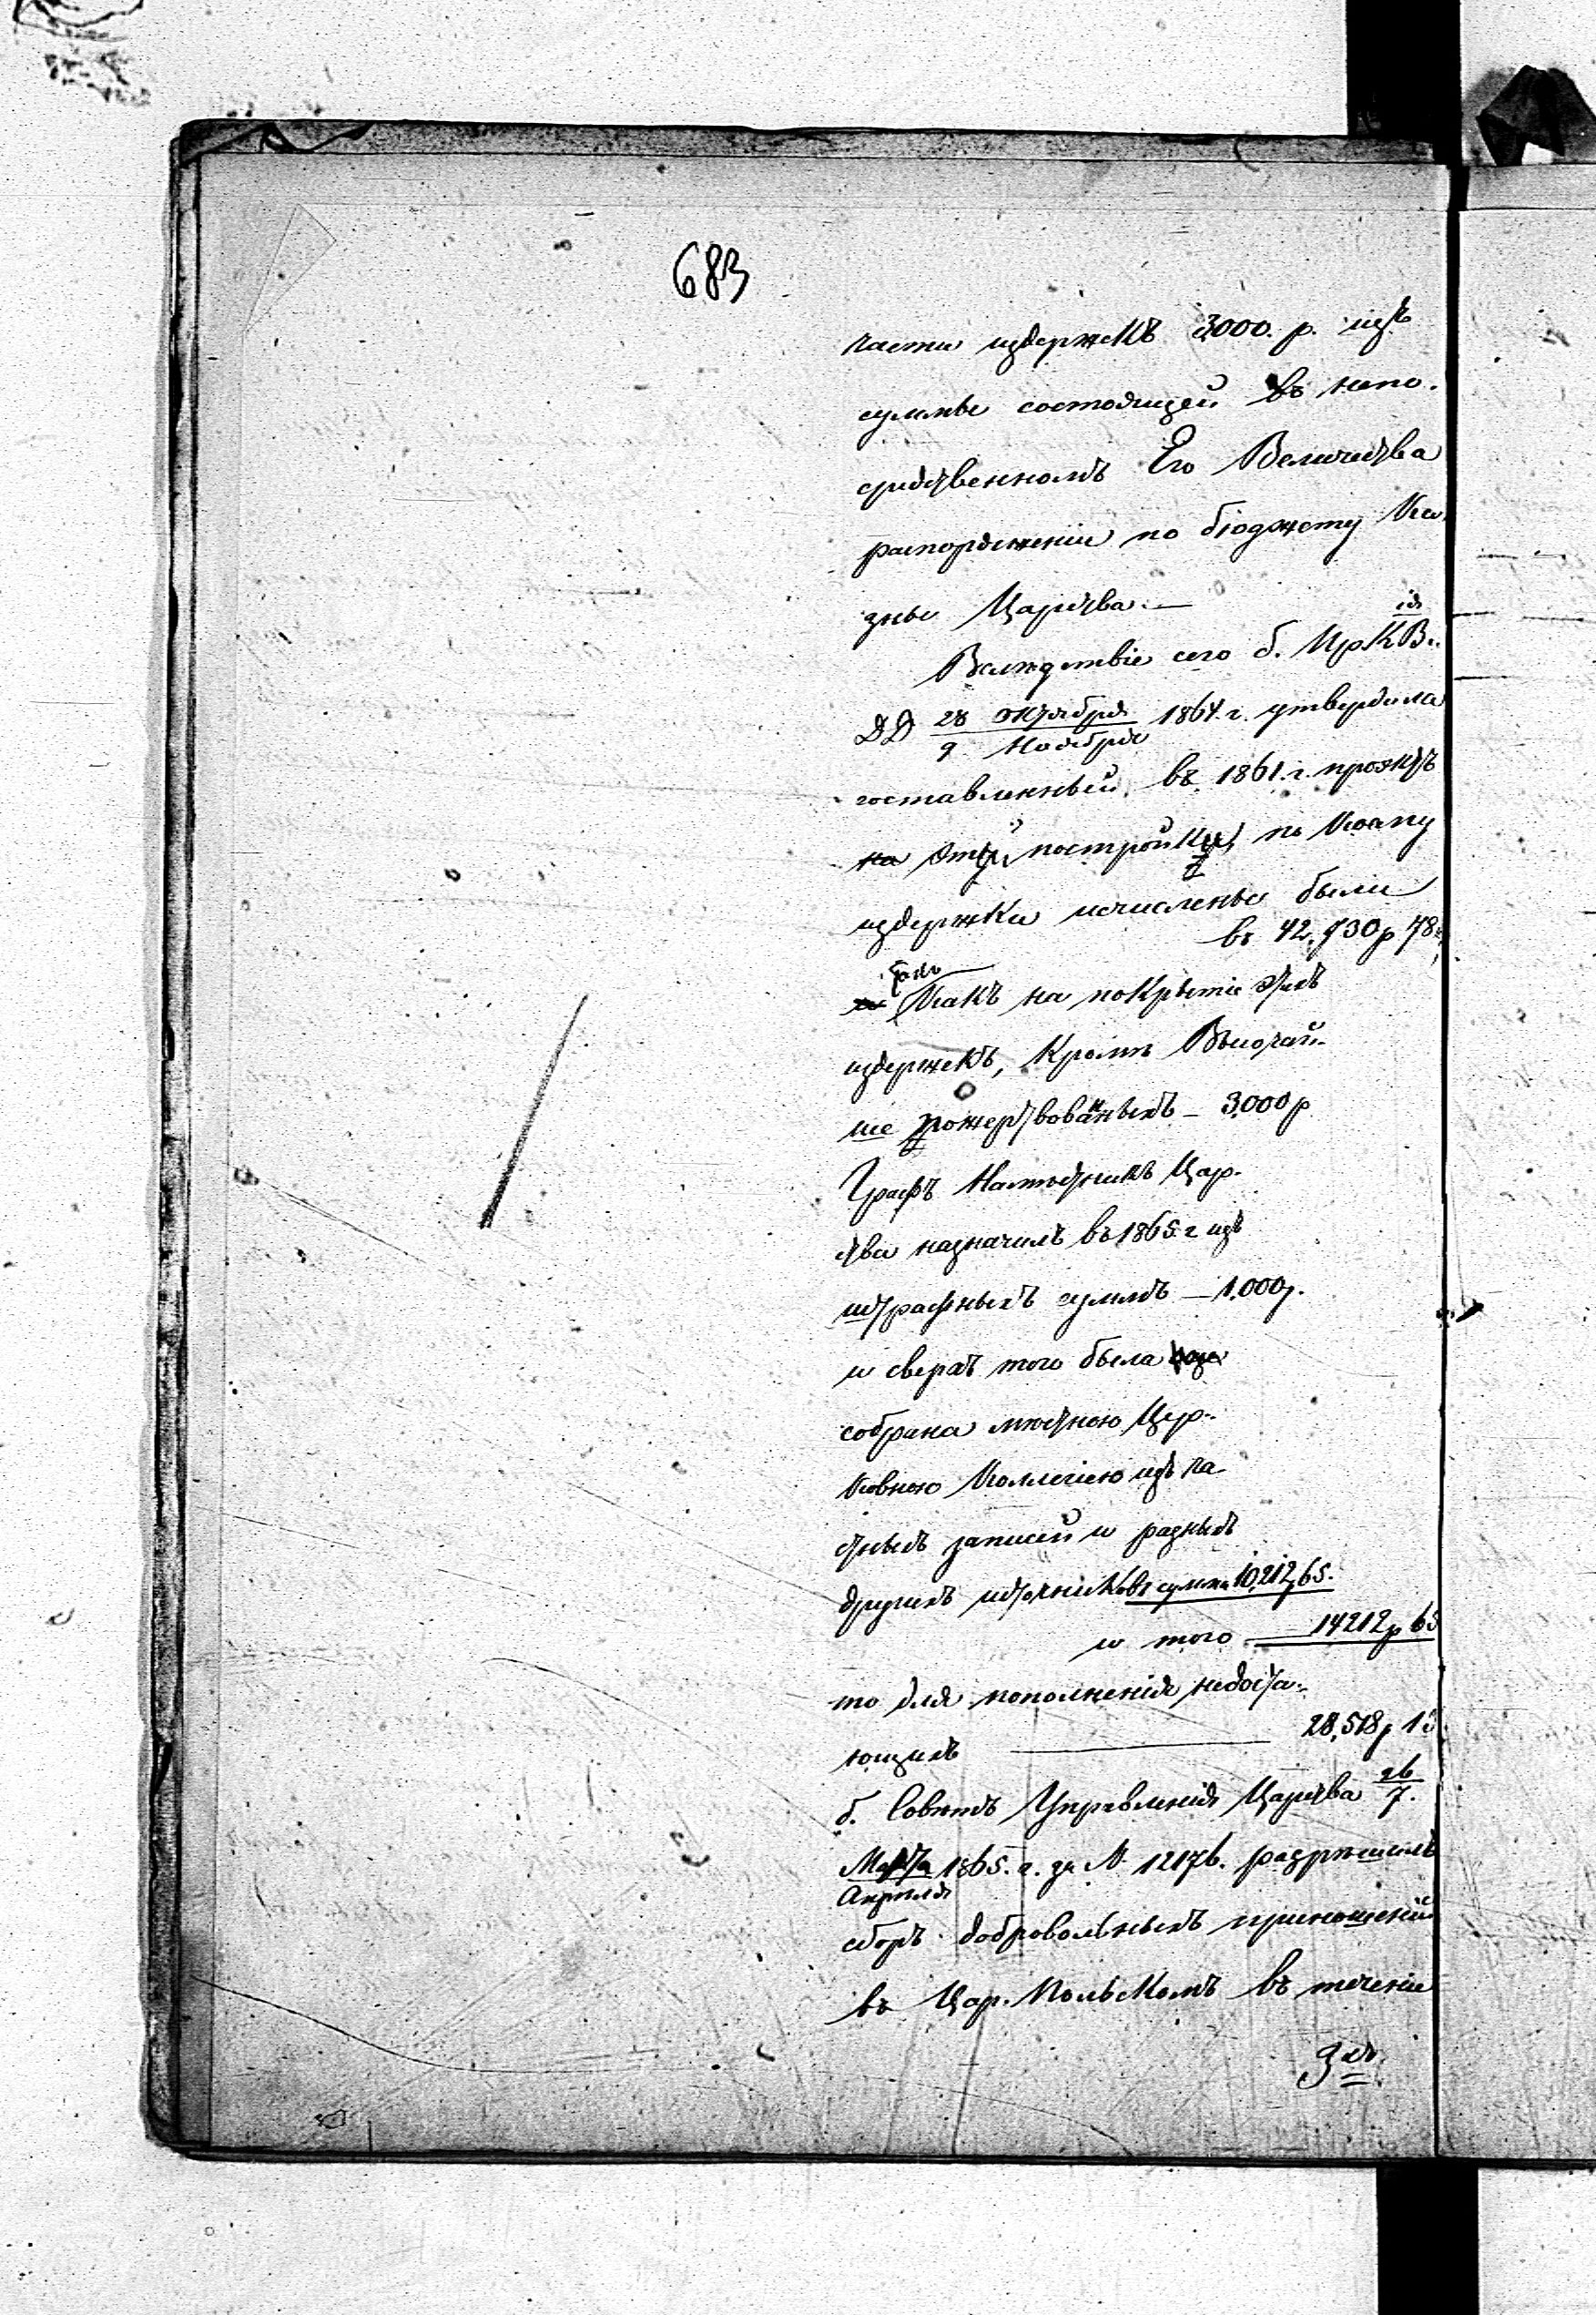 683
части издержекъ 3000. р. изъ
суммы состоящей въ непо-
средственномъ Его Величества
распоряженіи по бюджету Ка-
зны Царства.—
Вслѣдствіе сего б. Пр К В.
ДД 28 Октября / 9 Ноября 1864. г. утвердила
составленный въ 1861. г. проэктъ
постройки, по коему
издержки исчислены были
въ 42,730 р 78
Какъ на покрытіе этихъ
издержекъ, кромѣ Высочай-
ше пожертвованныхъ — 3.000 р
Графъ Намѣстникъ Цар-
ства назначилъ въ 1865. г изъ
штрафныхъ суммъ — 1.000 р.
и сверхъ того была
собрана мѣстною Цер-
ковною Коллегіею изъ ча-
стныхъ записей и разныхъ
другихъ источниковъ сумма 10,212,65.
и того — 14212 р 65
то для пополненія недоста-
ющихъ — 28,518 р 13
б. Совѣтъ Управленія Царства 26/7.
Марта/Апрѣля 1865. г. за N. 12176. разрѣшилъ
сборъ добровольныхъ приношеній
въ Цар. Польскомъ въ теченіе
3хъ